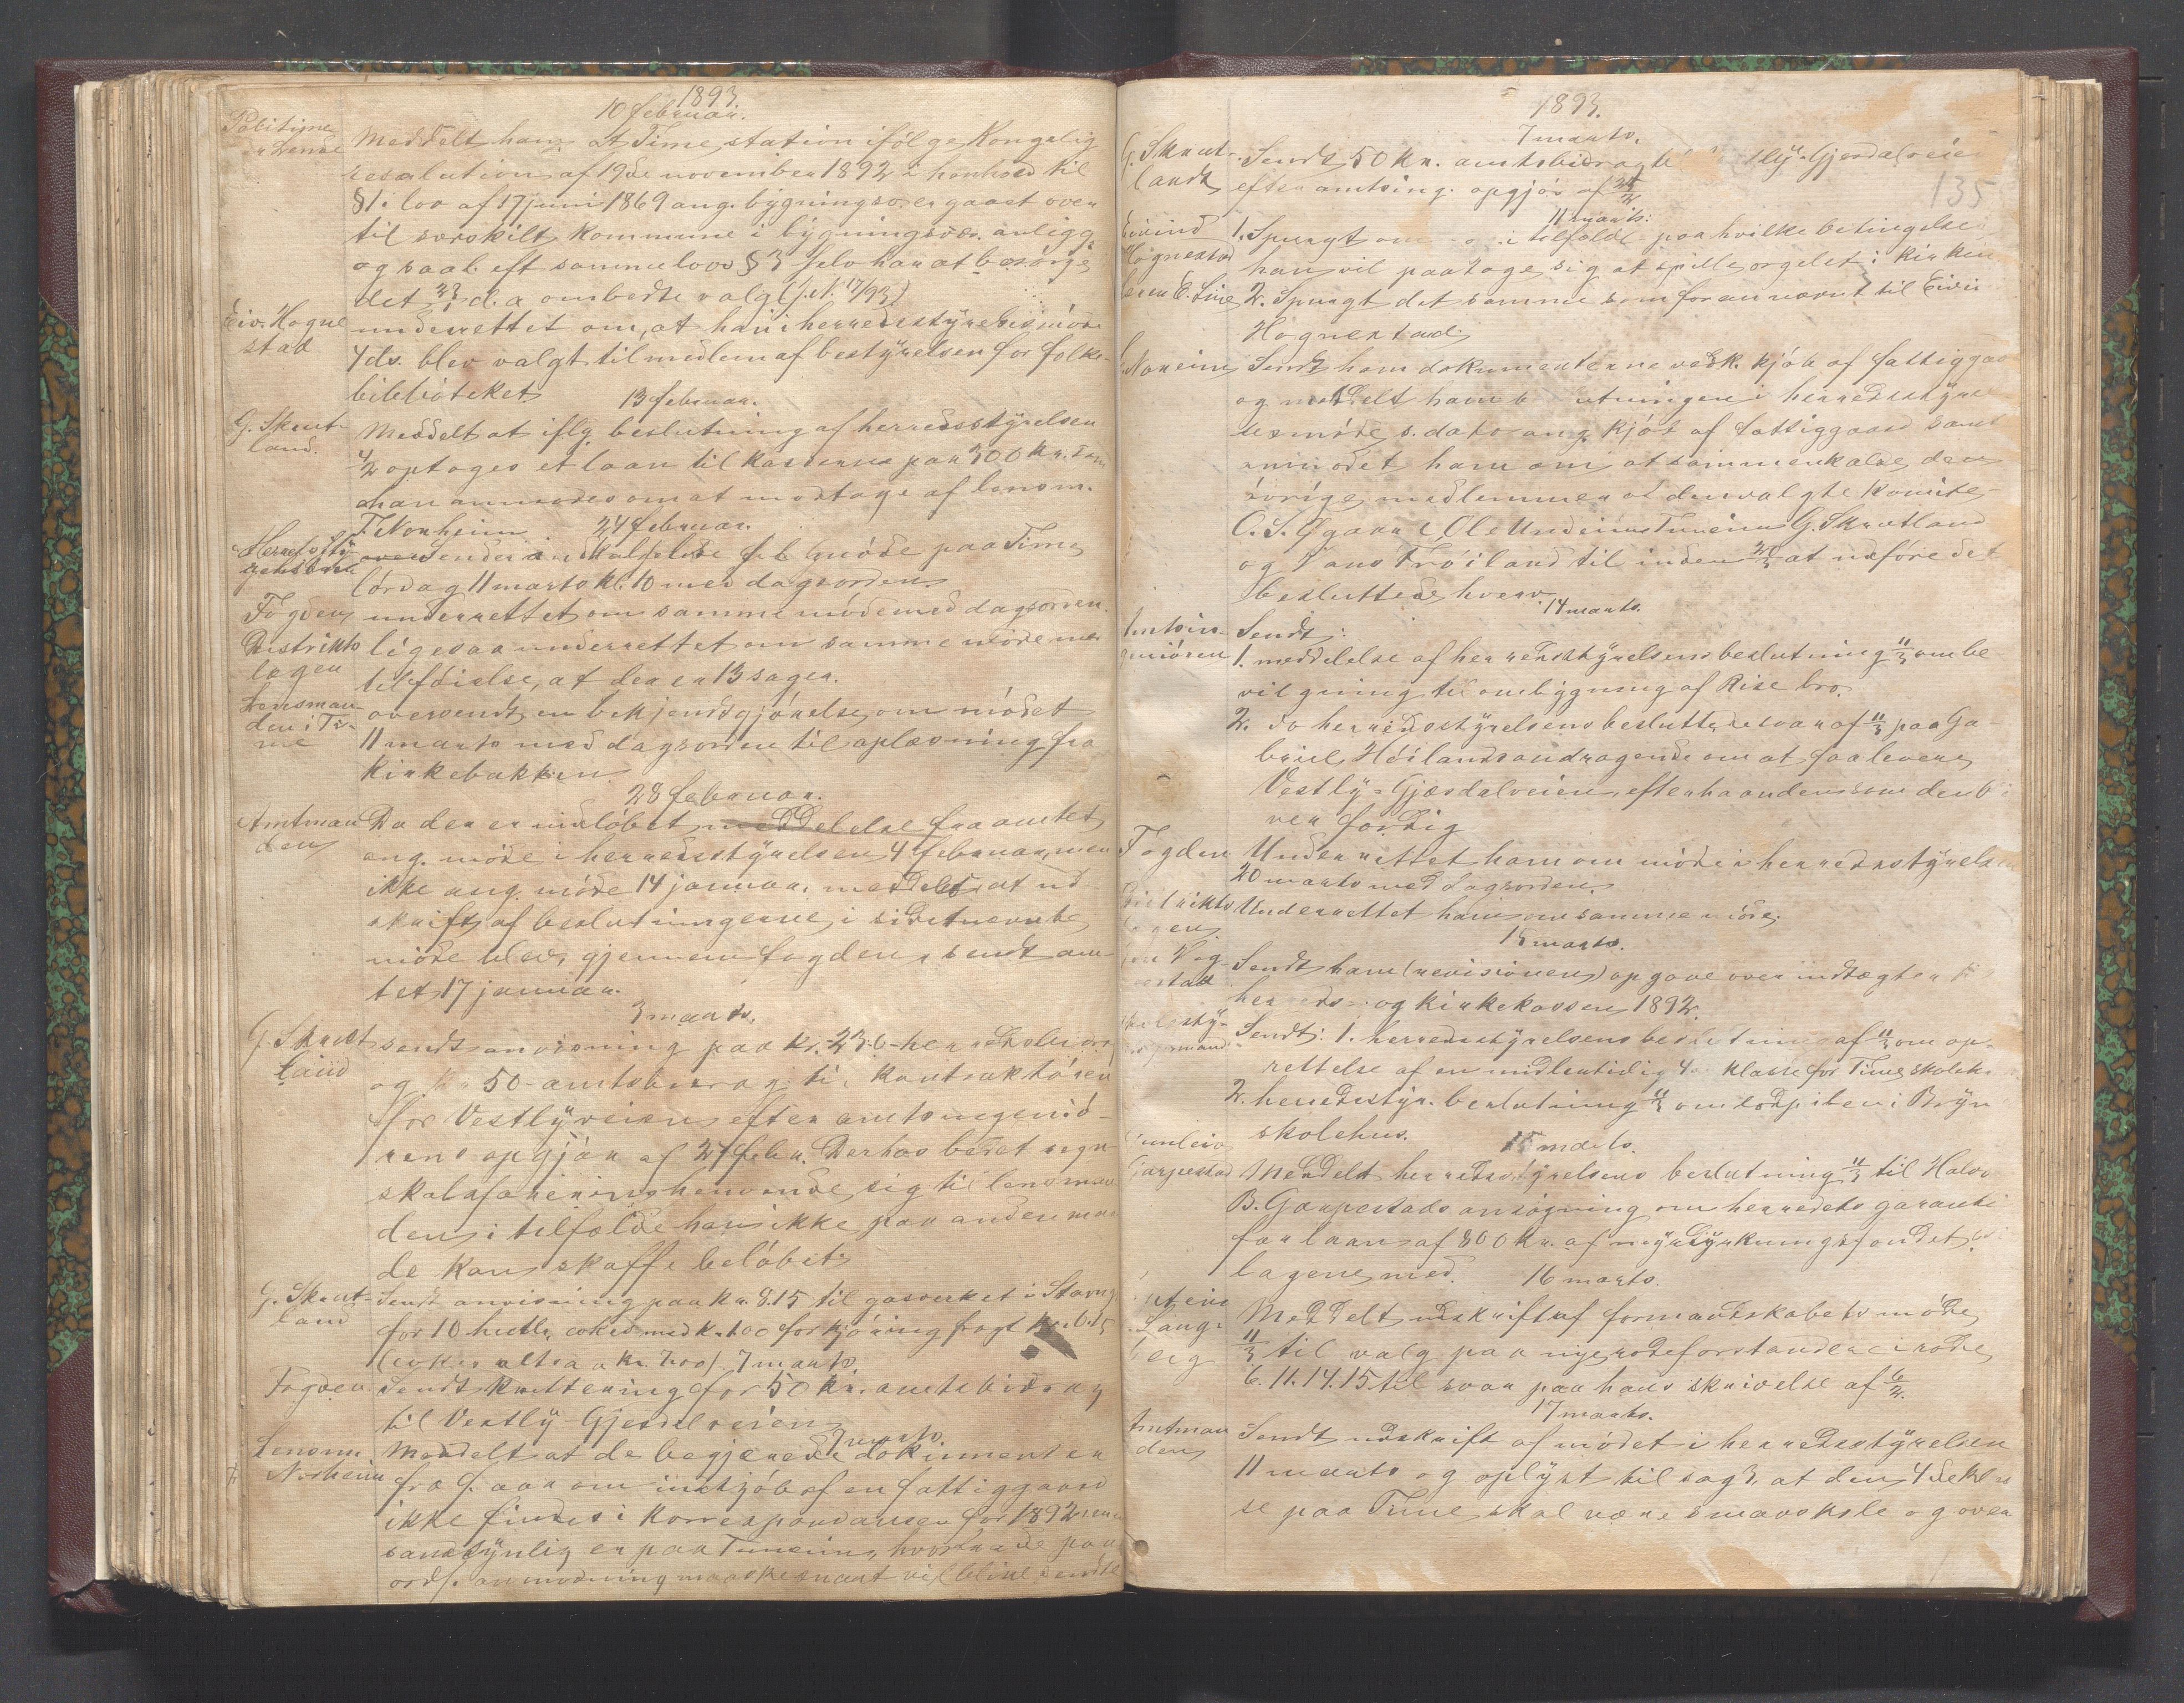 1893.
10 februar.
Politime-
Meddelt ham at Time station ifölge Kongelig
resolution af 19de november 1892 i henhold til
§1 i lov af 17 juni 1869 ang. bygningsv. er gaaet over
til særskilt kommune i bygningsvæs. anligg
og saal. eft samme lovs § 3 selv har at besörge
det d.a. ombedte valg (j.N. 17/93)
Eiv. Hogne
stad
underrettet om, at han i herredsstyrelsesmöde
4 ds. blev valgt til medlem af bestyrelsen for folke-
biblióteket.
13 februar.
G. Skrut-
land.
Meddelt at iflg. beslutning af herredsstyrelsen
4/2 optages et laan til kasserne paa 300 kr. som
han anmodes om at modtage af lensm.
T. Norheim
24 februar.
Herredssty-
lördag 11 marts kl. 10 med dagsorden.
Fogden
underrettet om samme möde med dagsorden.
Distrikts
lægen
ligesaa underrettet om samme möde med
tilföielse, at der er 13 sager.
Lensman-
den i Ti-
me
oversendt en bekjendtgjörelse om mödet
11 marts med dagsorden til oplæsning fra
Kirkebakken.
28 februar.
Amtman
den
Da der er indlöbet meddelelse fra amtet
ang. möde i herredsstyrelsen 4 februar, men
ikke ang. möde 14 januar, meddelt at ud-
skrift af beslutningerne i sidstnævnte
möde blev, gjennem fogden, sendt am-
tet 17 januar.
3 marts.
G. Skrut
land
sendt anvisning paa kr. 23.6 herredsbidrag
og kr 50 - amtsbidrag til kontraktören
for Vestlyveien efter amtsingeniö-
rens opgjör af 27 febr. Derhos bedet regn-
skabsföreren henvende sig til lensman
den i tilfælde han ikke paa anden maa
de kan skaffe belöbet.
G. Skrut-
land
Sendt anvisning paa kr. 8.15 til gasverket i Stavng
for 10 hectl. cokes med kr. 1.00 for kjöring fragt kr. 0.15
(cokes altsaa kr. 7.00). 7 marts.
Fogden
Sendt kvittering for 50 kr. amtsbidrag
til Vestly-Gjesdalveien
9 marts
Lensm.
T. Norheim
Meddelt at de begjærede dokumenter
fra f. aar om indkjöb af en fattiggaard
ikke findes i korrespondansen for 1892 men
sandsynlig er paa Tunheim, hvorfra de paa
ordf. anmodning maaske snart vil blive sendte
1893.
7 marts.
135
G. Skrut-
landt
Sendt 50 kr. amtsbidrag til Vestly-Gjesdalveien
efter amtsing. opgjör af
11 marts.
Eivind
Hognestad
1. Spurgt om og i tilfælde paa hvilke betingelser
han vil paatage sig at spille orgelet i kirken
2. Spurgt det samme som foran nævnt til Eivin
Hognestad.
Norheim
Sendt ham dokumenterne vedk. kjöb af fattiggaa
og meddelt ham beslutningen i herredsstyre
lesmöde s. dato ang. kjöb af fattiggaard samt
anmodet ham om at sammenkalde de
övrige medlemmer af den valgte komite
O. S. Ögaar, Ole Undeim Tunheim, G. Skrutland
og Hans Fröiland til inden at udföre det
besluttede hverv.
14 marts.
Amtsin-
geniören
Sendt:
1. meddelelse af herredsstyrelsens beslutning 11/3 om be-
vilgning til ombygning af Rise bro.
2. do herredsstyrelsens besluttede svar af 11/3 paa Ga-
briel Höilands andragende om at faa levere
Vestly-Gjesdalveien efterhaanden som den bli
ver færdig
Fogden
Underrettet ham om möde i herredsstyrels
20 marts med dagsorden.
Distrikts
lægen
Underrettet ham om samme möde.
15 marts.
Sendt ham (revisionen) opgave over indtægter
herreds- og kirkekassen 1892.
Sendt: 1. herredsstyrelsens beslutning af 11/3 om op-
rettelse af en midlertidig 4 klasse for Time skolek.
2. herredsstyr. beslutning 11/3 om lodpiben i Bryn
skolehus.
15 marts.
Garpestad
Meddelt herredsstyrelsens beslutning 11/3 til Halvo
B. Garpestads ansögning om herredets garanti
for laan af 800 kr. af myrdyrkningsfondet
lagene med.
16 marts.
Meddelt udskrift af formandskabets möde
11/3 til valg paa nye rodeforstandere i rode
6. 11. 14. 15. til svar paa hans skrivelse af 6/2.
17 marts.
Amtman
den
Sendt udskrift af mödet i herredsstyrelsen
11 marts og oplyst til sag 3, at den 4de kla
se paa Time skal være smaaskole og over